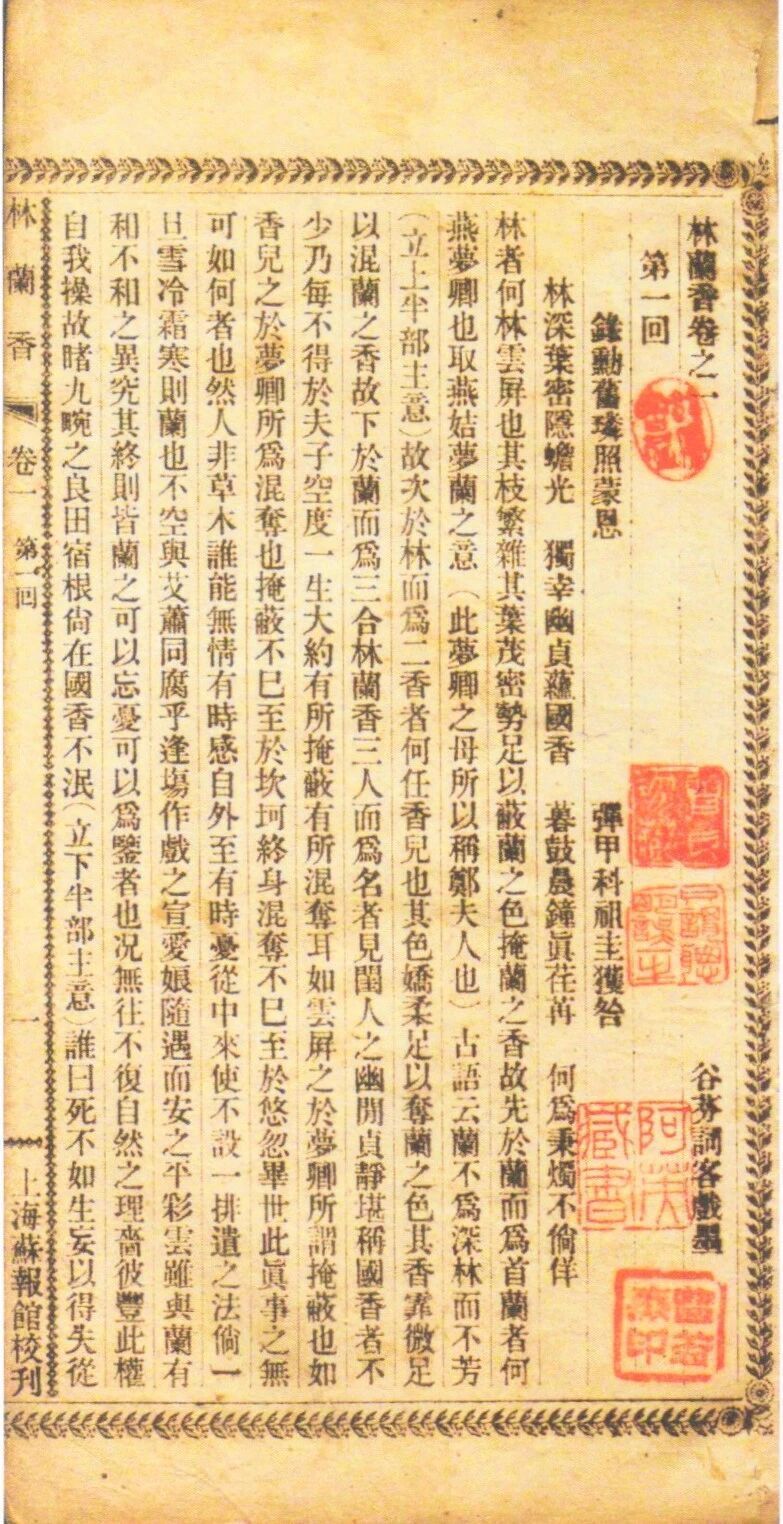 林蘭香卷之一
谷芬詞客戲墨
第一回
鋒動舊璘照蒙恩　彈甲科祖圭獲咎
林深葉密隱蟾光　獨幸幽貞蘊國香　暮鼓晨鐘眞荏苒　何爲秉燭不倘佯
林者何林雲屏也其枝繁雜其葉茂密勢足以蔽蘭之色掩蘭之香故先於蘭而爲首蘭者何
燕夢卿也取燕姞夢蘭之意（此夢卿之母所以稱鄭夫人也）古語云蘭不爲深林而不芳
（立上半部主意）故次於林而爲二香者何任香兒也其色嬌柔足以奪蘭之色其香霏微足
以混蘭之香故下於蘭而爲三合林蘭香三人而爲名者見閨人之幽閒貞靜堪稱國香者不
少乃每不得於夫子空度一生大約有所掩蔽有所混奪耳如雲屏之於夢卿所謂掩蔽也如
香兒之於夢卿所爲混奪也掩蔽不已至於坎坷終身混奪不已至於悠忽畢世此眞事之無
可如何者也然人非草木誰能無情有時感自外至有時憂從中來使不設一排遣之法倘一
旦雪冷霜寒則蘭也不空與艾蕭同腐乎逢塲作戲之宣愛娘隨遇而安之平彩雲雖與蘭有
和不和之異究其終則皆蘭之可以忘憂可以爲鑒者也况無往不復自然之理嗇彼豐此權
自我操故睹九畹之良田宿根尙在國香不泯（立下半部主意）誰曰死不如生妄以得失從
林蘭香　卷一　第一回　一　上海蘇報館校刊
阿英
藏書